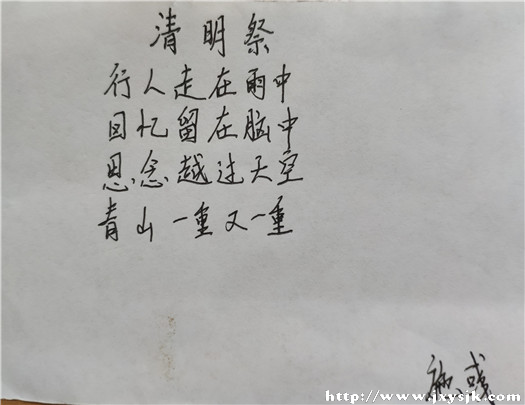 清明祭
行人走在雨中
回忆留在脑中
思念越过天空
青山一重又一重
http://www.jxysjk.com